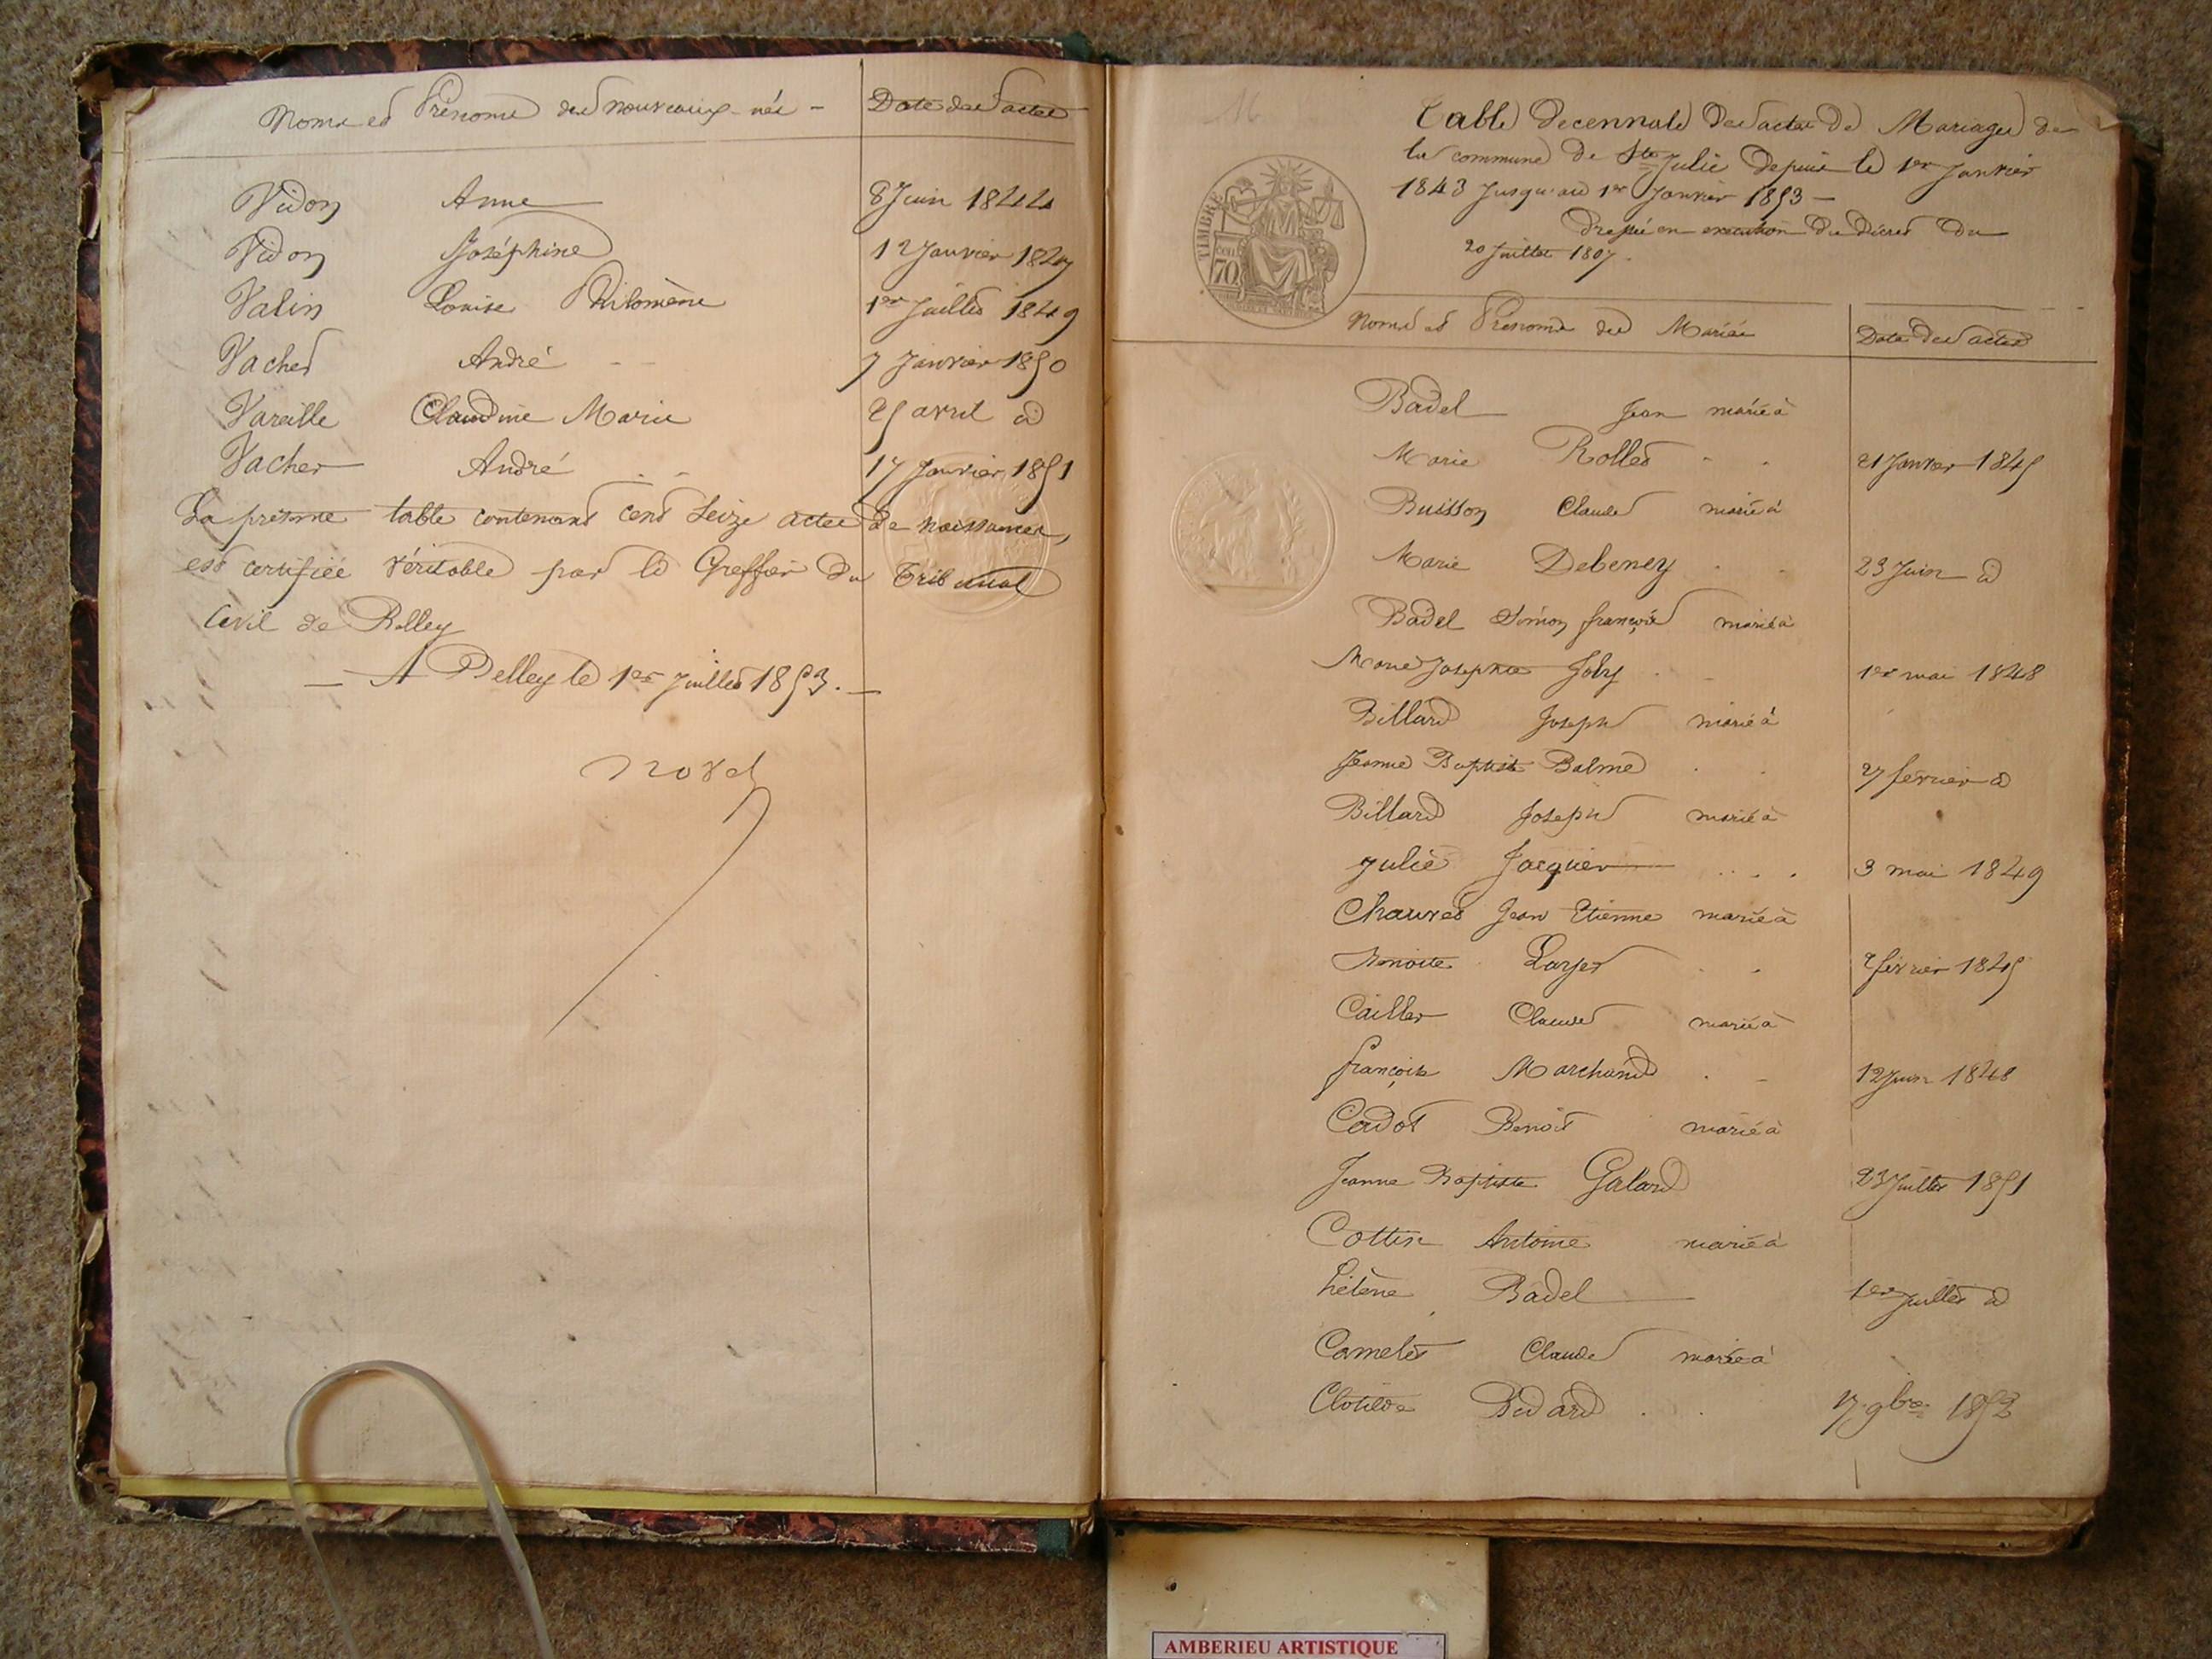 Noms et Prénoms des nouveaux-nés - Date des actes
Vidon Anne 8 Juin 1844
Vidon Joséphine 12 Janvier 1847
Valin Louise Philomène 1er Juillet 1849
Vachet André 7 Janvier 1850
Vareille Claudine Marie 25 avril d
Vacher André 17 Janvier 1851
La présente table contenant cent seize actes de naissances,
est certifiée véritable par le Greffier du Tribunal
Civil de Belley
- A Belley le 1er Juillet 1853. -
16
Table Decennale des actes de Mariages de
la commune de Ste Julie depuis le 1er Janvier
1843 Jusqu'au 1er Janvier 1853 -
Dressée en execution du Décret du
20 Juillet 1807.
TIMBRE
70
Noms et Prénoms des Mariés Date des actes
Badel Jean marié à
Marie Rollet 21 Janvier 1845
Buisson Claude marié à
Marie Debeney 23 Juin d
Badel Simon françois marié à
Marie Josephte Joly 1er mai 1848
Billard Joseph marié à
Jeanne Baptiste Balme 27 février d
Billard Joseph marié à
Julie Jacquier 3 mai 1849
Chauvet Jean Etienne marié à
Benoite Larget 2 février 1845
Cailler Claude marié à
françoise Marchand 12 Juin 1848
Cadot Benoit marié à
Jeanne Baptiste Galard 23 Juillet 1851
Cottin Antoine marié à
hélène Badel 1er Juillet d
Camelet Claude marié à
Clotilde Bidard 17 9bre 1852
AMBERIEU ARTISTIQUE